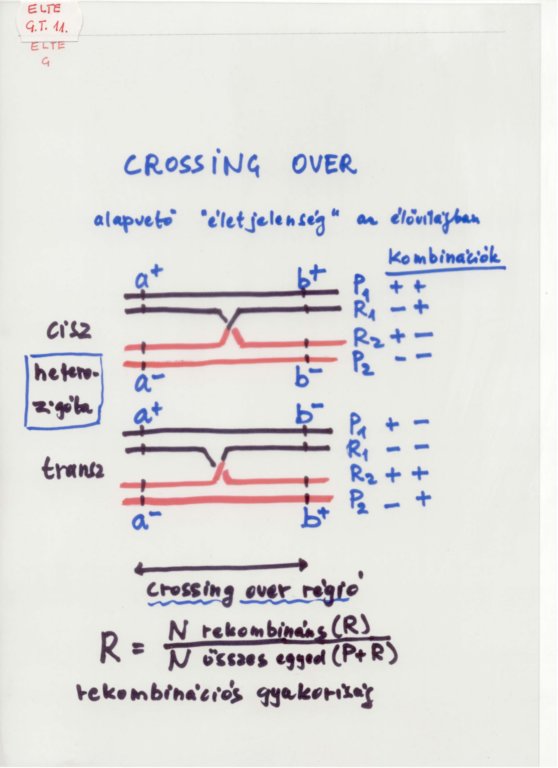 ELTE
G.T. 11.
ELTE
G
CROSSING OVER
alapvető "életjelenség" az élővilágban
Kombinációk
a+ b+ P1 + +
R1 - +
cisz R2 + -
P2 - -
a- b-
hetero-
zigóta
a+ b- P1 + -
R1 - -
transz R2 + +
P2 - +
a- b+
crossing over régió
R = N rekombináns (R)
N összes egyed (P+R)
rekombinációs gyakoriság